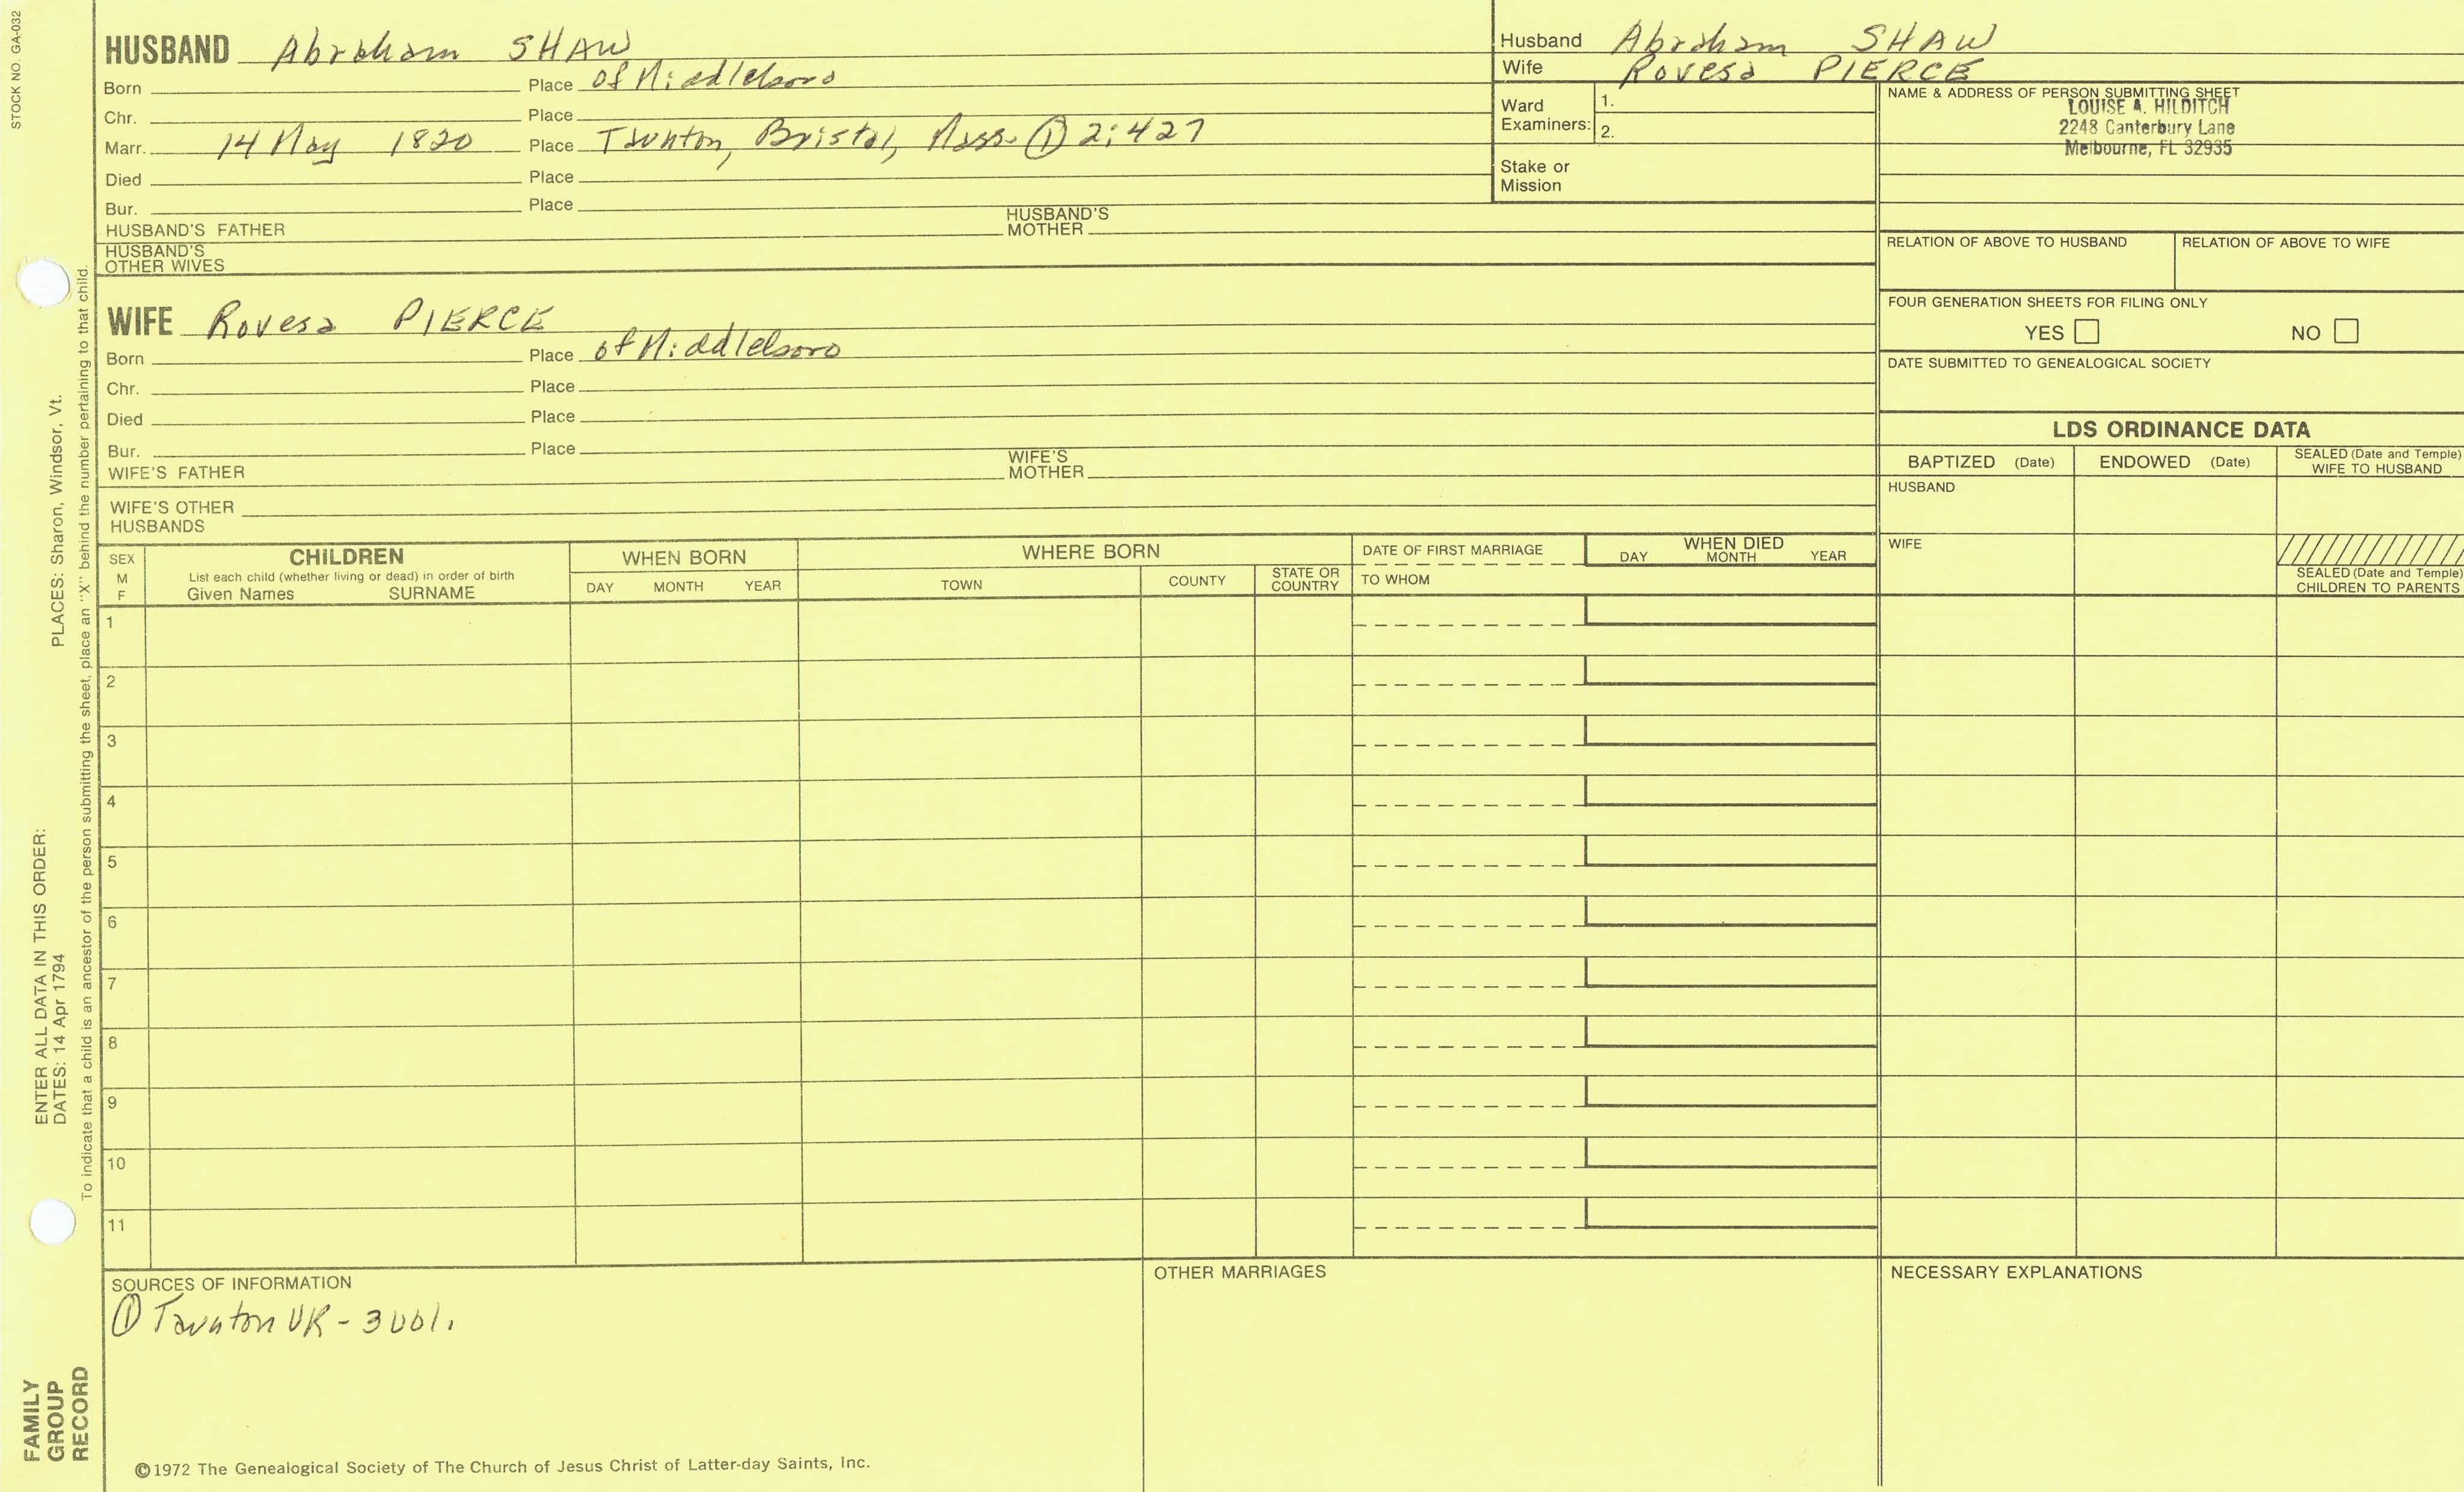 STOCK NO. GA-032
HUSBAND Abraham SHAW
Born Place of Middleboro
Chr. Place
Marr. 14 May 1820 Place Taunton, Bristol, Mass. ① 2:427
Died Place
Bur. Place
HUSBAND'S FATHER HUSBAND'S MOTHER
HUSBAND'S OTHER WIVES
WIFE Rovesa PIERCE
Born Place of Middleboro
Chr. Place
Died Place
Bur. Place
WIFE'S FATHER WIFE'S MOTHER
WIFE'S OTHER HUSBANDS
Husband Abraham SHAW
Wife Rovesa PIERCE
Ward Examiners: 1.
2.
Stake or Mission
NAME & ADDRESS OF PERSON SUBMITTING SHEET
LOUISE A. HILDITCH
2248 Canterbury Lane
Melbourne, FL 32935
RELATION OF ABOVE TO HUSBAND RELATION OF ABOVE TO WIFE
FOUR GENERATION SHEETS FOR FILING ONLY
YES NO
DATE SUBMITTED TO GENEALOGICAL SOCIETY
LDS ORDINANCE DATA
BAPTIZED (Date) ENDOWED (Date) SEALED (Date and Temple) WIFE TO HUSBAND
HUSBAND
WIFE
SEALED (Date and Temple) CHILDREN TO PARENTS
SEX M F
CHILDREN
List each child (whether living or dead) in order of birth
Given Names SURNAME
WHEN BORN
DAY MONTH YEAR
WHERE BORN
TOWN COUNTY STATE OR COUNTRY
DATE OF FIRST MARRIAGE
TO WHOM
WHEN DIED
DAY MONTH YEAR
1
2
3
4
5
6
7
8
9
10
11
SOURCES OF INFORMATION
① Taunton VR - 3 vol.
OTHER MARRIAGES
NECESSARY EXPLANATIONS
©1972 The Genealogical Society of The Church of Jesus Christ of Latter-day Saints, Inc.
FAMILY GROUP RECORD
ENTER ALL DATA IN THIS ORDER:
DATES: 14 Apr 1794 PLACES: Sharon, Windsor, Vt.
To indicate that a child is an ancestor of the person submitting the sheet, place an "X" behind the number pertaining to that child.